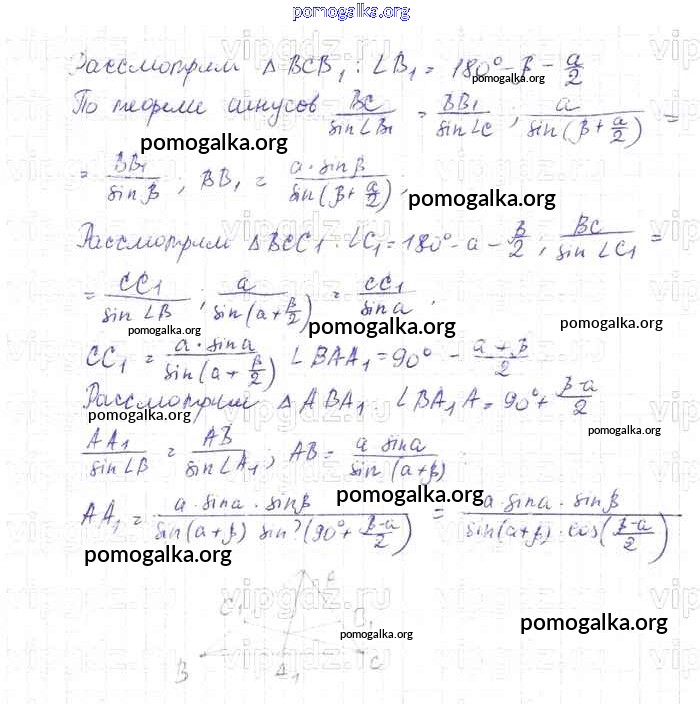 pomogalka.org
Рассмотрим Δ BCB₁ : ∠B₁ = 180° - β - a/2
pomogalka.org
По теореме синусов BC/sin∠B₁ = BB₁/sin∠C ; a/sin(β + a/2) =
pomogalka.org
= BB₁/sin β ; BB₁ = a·sinβ/sin(β + a/2) ;
pomogalka.org
Рассмотрим Δ BCC₁ : ∠C₁ = 180° - a - β/2 ; BC/sin∠C₁ =
= CC₁/sin∠B ; a/sin(a + β/2) = CC₁/sin a ;
pomogalka.org pomogalka.org pomogalka.org
CC₁ = a·sina/sin(a + β/2) ∠BAA₁ = 90° - a+β/2
Рассмотрим Δ ABA₁ : ∠BA₁A = 90° + β-a/2
pomogalka.org
pomogalka.org
AA₁/sin∠B = AB/sin∠A₁ ; AB = a sina/sin(a+β)
pomogalka.org
AA₁ = a·sina·sinβ/sin(a+β) sin?(90° + β-a/2) = a·sina·sinβ/sin(a+β)·cos(β-a/2)
pomogalka.org
C₁
pomogalka.org pomogalka.org
B A₁ C
vipgdz.ru